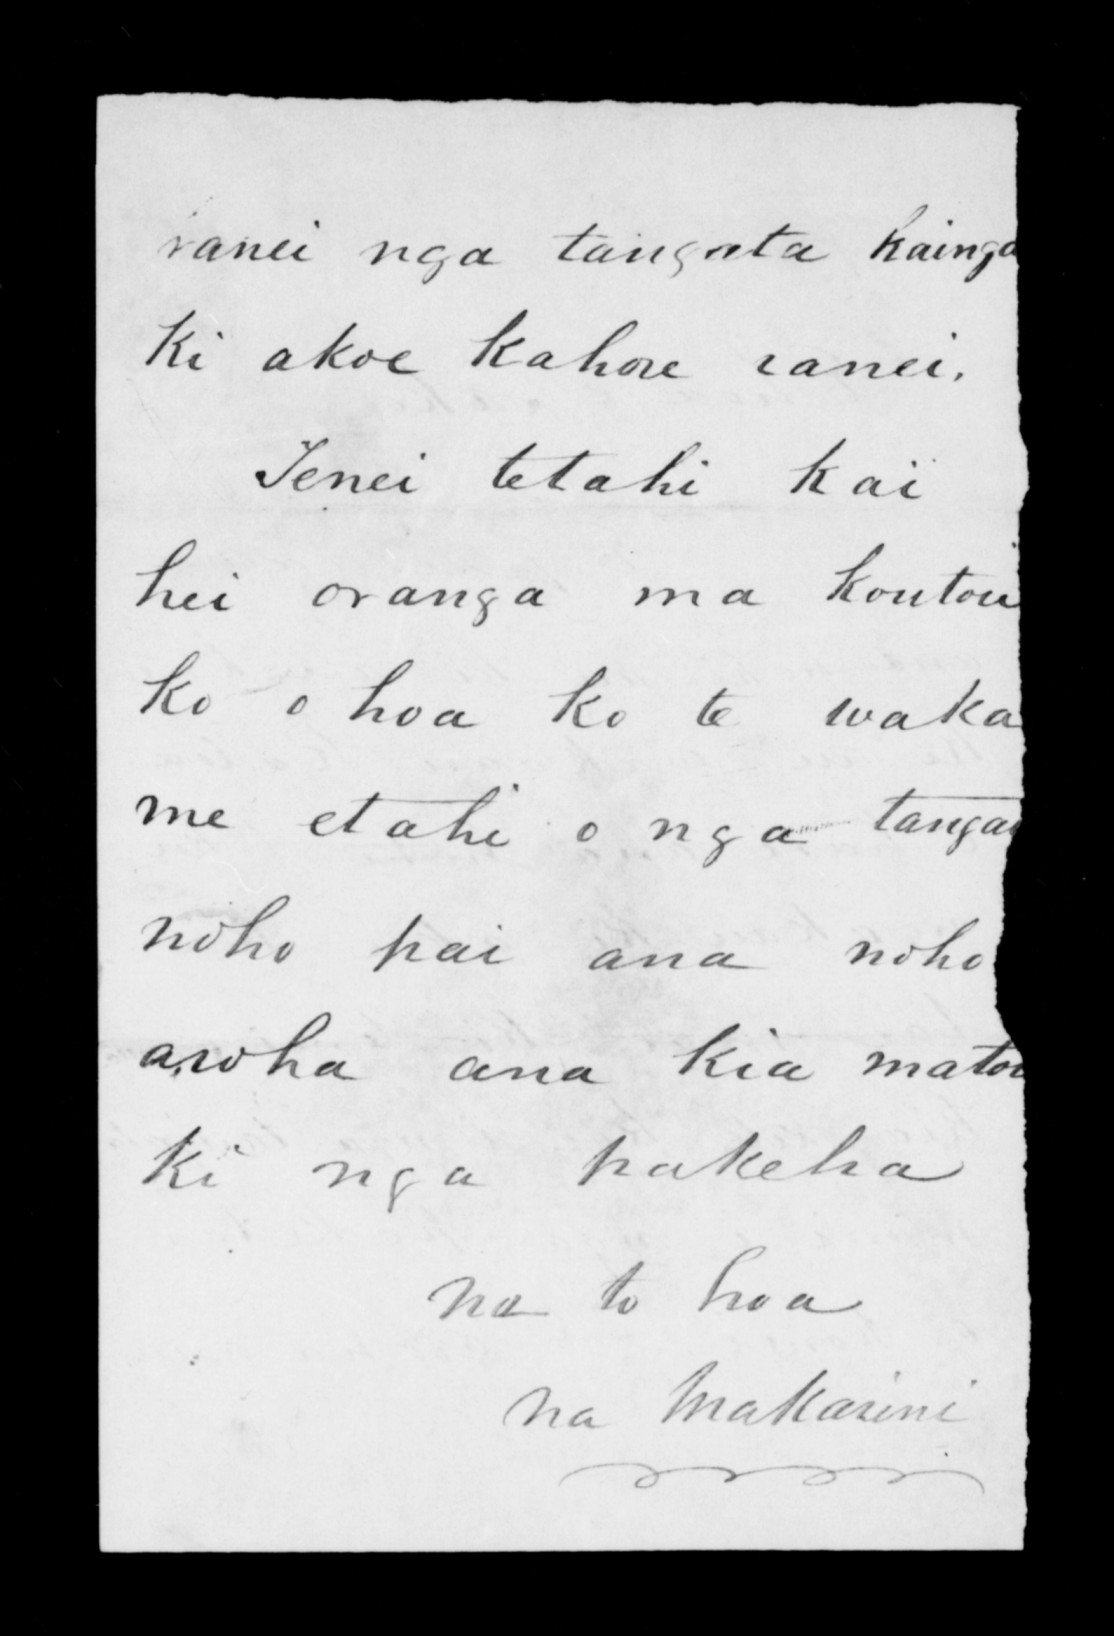 ranei nga tangata kainga
ki akoe kahore ranei.
Tenei tetahi kai
hei oranga ma koutou
ko o hoa ko te waka
me etahi o nga tangat
noho pai ana noho
aroha ana kia matou
ki nga pakeha
na to hoa
na Makarini